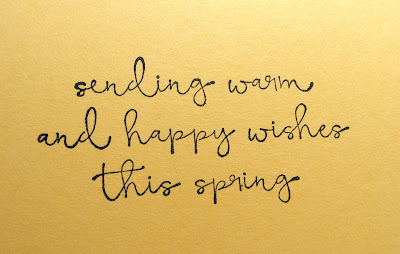 sending warm
and happy wishes
this spring